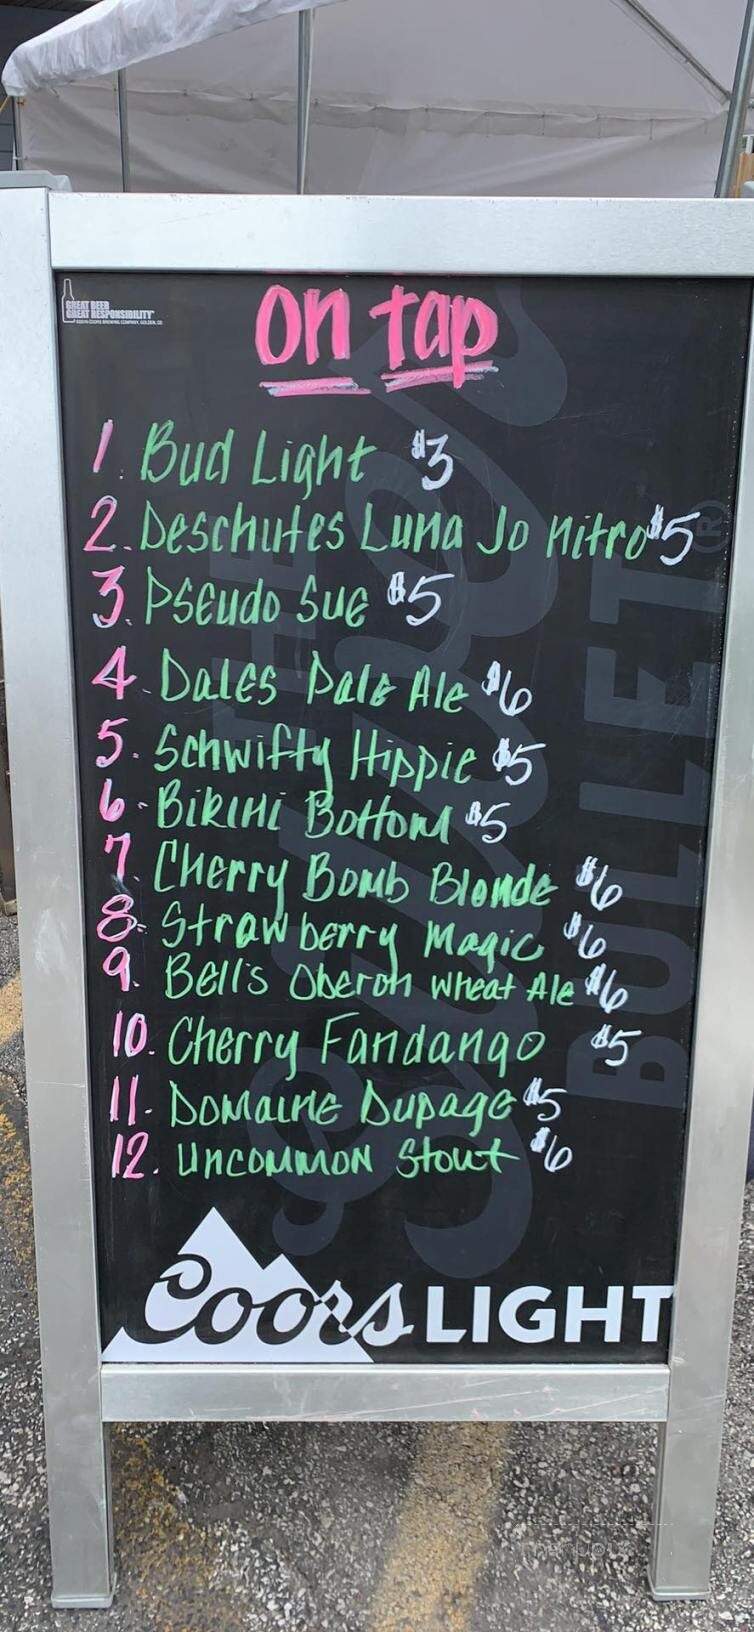 GREAT BEER
GREAT RESPONSIBILITY
on tap
1. Bud Light $3
2. Deschutes Luna Jo nitro $5
3. Pseudo Sue $5
4. Dales Pale Ale $6
5. Schwifty Hippie $5
6. Bikini Bottom $5
7. Cherry Bomb Blonde $6
8. Strawberry Magic $6
9. Bell's Oberon Wheat Ale $6
10. Cherry Fandango $5
11. Domaine Dupage $5
12. Uncommon Stout $6
THE
Silver
BULLET®
Coors LIGHT